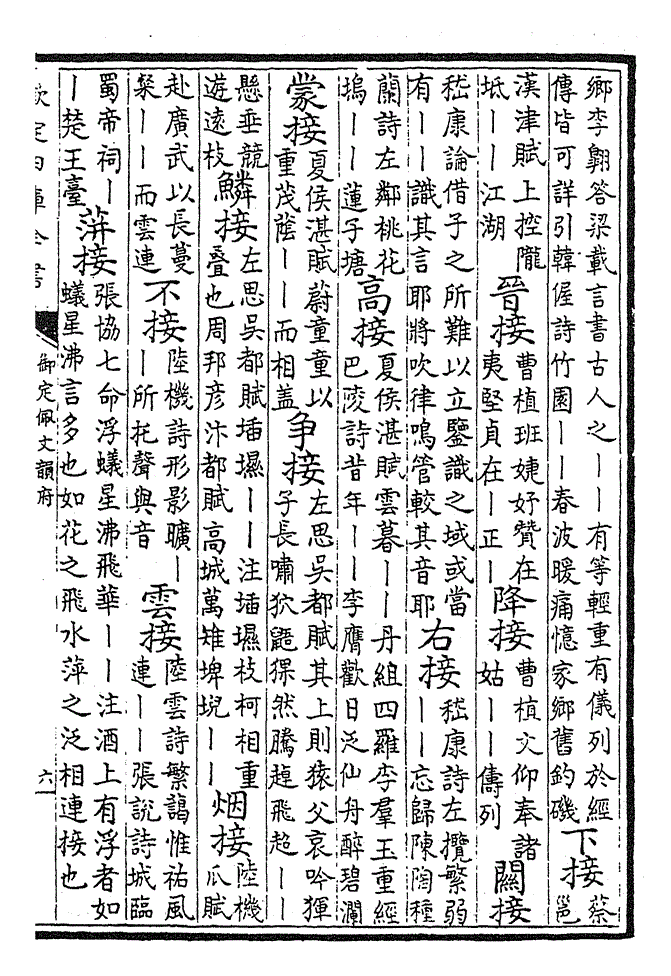 鄉李翺答梁載言書古人之丨丨有等輕重有儀列於經傳皆可詳引韓偓詩竹園丨丨春波暖痛憶家鄉舊釣磯下接蔡邕
漢津賦上控隴坻丨丨江湖晉接曹植班婕妤贊在夷堅貞在丨正丨降接曹植文仰奉諸姑丨丨儔列關接
嵇康論借子之所難以立鑒識之域或當有丨丨識其言耶將吹律鳴管較其音耶右接嵇康詩左攬繁弱丨丨忘歸陳陶種
蘭詩左鄰桃花塢丨丨蓮子塘高接夏侯湛賦雲暮丨丨丹組四羅李羣玉重經巴陵詩昔年丨丨李膺歡日泛仙舟醉碧瀾
蒙接夏侯湛賦蔚童童以重茂蔭丨丨而相盖争接左思吳都賦其上則猿父哀吟獋子長嘯狖鼯猓然騰趠飛超丨丨
懸垂競遊遠枝鱗接左思吳都賦插㙷丨丨注插㙷枝柯相重疊也周邦彥汴都賦高城萬雉埤堄丨丨烟接陸機瓜賦
赴廣武以長蔓粲丨丨而雲連不接陸機詩形影曠丨丨所托聲與音雲接陸雲詩繁藹惟祐風連丨丨張說詩城臨
蜀帝祠丨丨楚王臺蓱接張協七命浮蟻星沸飛華丨丨注酒上有浮者如蟻星沸言多也如花之飛水萍之泛相連接也
欽定四庫全書
御定佩文韻府
六